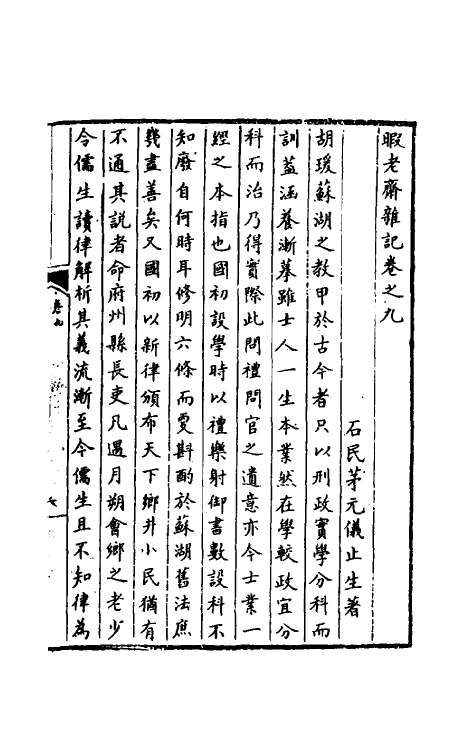 暇老齋雜記卷之九
石民茅元儀止生著
胡瑗蘇湖之教甲於古今者只以刑政實學分科而
訓葢涵養漸摹雖士人一生本業然在學較政宜分
科而治乃得實際此問禮問官之遺意亦今士業一
經之本指也國初設學時以禮樂射御書數設科不
知廢自何時耳修明六條而更斟酌於蘇湖舊法庶
幾盡善矣又國初以新律頒布天下鄉井小民猶有
不通其說者命府州縣長吏凡遇月朔會鄉之老少
令儒生讀律解析其義流漸至今儒生且不知律為
卷九